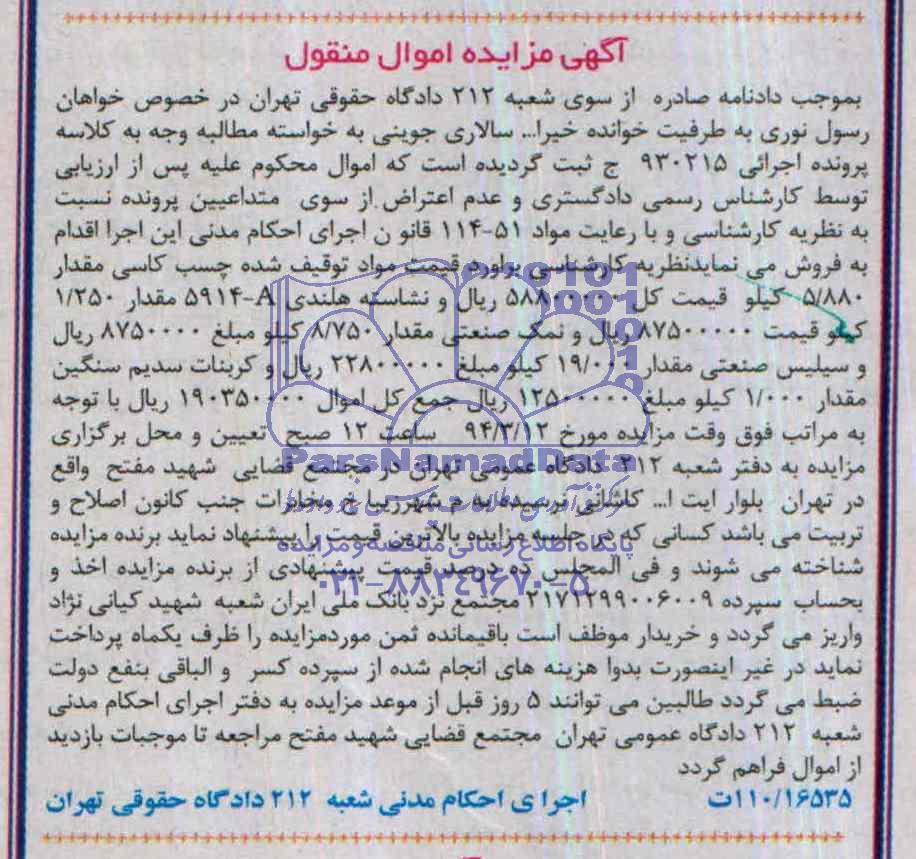 آگهی مزایده اموال منقول
بموجب دادنامه صادره از سوی شعبه ۲۱۲ دادگاه حقوقی تهران در خصوص خواهان
رسول نوری به طرفیت خوانده خیرا... سالاری جوینی به خواسته مطالبه وجه به کلاسه
پرونده اجرائی ۹۳۰۲۱۵ ج ثبت گردیده است که اموال محکوم علیه پس از ارزیابی
توسط کارشناس رسمی دادگستری و عدم اعتراض از سوی متداعیین پرونده نسبت
به نظریه کارشناسی و با رعایت مواد ۵۱-۱۱۴ قانو ن اجرای احکام مدنی این اجرا اقدام
به فروش می نمایدنظریه کارشناسی براورد قیمت مواد توقیف شده چسب کاسی مقدار
۵/۸۸۰ کیلو قیمت کل ۵۸۸۰۰۰۰۰۰ ریال و نشاسته هلندی A-۵۹۱۴ مقدار ۱/۲۵۰
کیلو قیمت ۸۷۵۰۰۰۰۰ ریال و نمک صنعتی مقدار ۸/۷۵۰ کیلو مبلغ ۸۷۵۰۰۰۰ ریال
و سیلیس صنعتی مقدار ۱۹/۰۰۰ کیلو مبلغ ۲۲۸۰۰۰۰۰ ریال و کربنات سدیم سنگین
مقدار ۱/۰۰۰ کیلو مبلغ ۱۲۵۰۰۰۰۰ ریال جمع کل اموال ۱۹۰۳۵۰۰۰۰ ریال با توجه
به مراتب فوق وقت مزایده مورخ ۹۴/۳/۱۲ ساعت ۱۲ صبح تعیین و محل برگزاری
مزایده به دفتر شعبه ۲۱۲ دادگاه عمومی تهران در مجتمع قضایی شهید مفتح واقع
در تهران بلوار ایت ا... کاشانی نرسیده به م شهرزیبا خ مخابرات جنب کانون اصلاح و
تربیت می باشد کسانی که در جلسه مزایده بالاترین قیمت را پیشنهاد نماید برنده مزایده
شناخته می شوند و فی المجلس ده درصد قیمت پیشنهادی از برنده مزایده اخذ و
بحساب سپرده ۲۱۷۱۲۹۹۰۰۶۰۰۹ مجتمع نزد بانک ملی ایران شعبه شهید کیانی نژاد
واریز می گردد و خریدار موظف است باقیمانده ثمن موردمزایده را ظرف یکماه پرداخت
نماید در غیر اینصورت بدوا هزینه های انجام شده از سپرده کسر و الباقی بنفع دولت
ضبط می گردد طالبین می توانند ۵ روز قبل از موعد مزایده به دفتر اجرای احکام مدنی
شعبه ۲۱۲ دادگاه عمومی تهران مجتمع قضایی شهید مفتح مراجعه تا موجبات بازدید
از اموال فراهم گردد
۱۱۰/۱۶۵۳۵ت اجرا ی احکام مدنی شعبه ۲۱۲ دادگاه حقوقی تهران
ParsNamadData
پایگاه اطلاع رسانی مناقصه و مزایده
۰۲۱-۸۸۳۴۹۶۷۰-۵